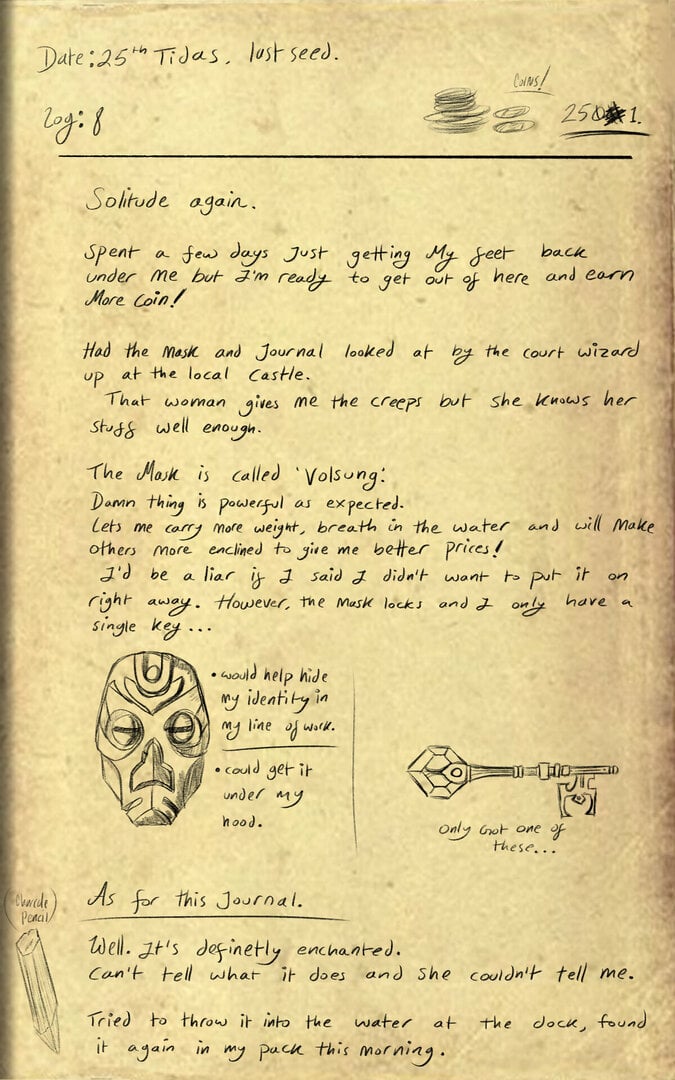 Date: 25th Tidas, last seed.
Coins!
Log: 8
250 1.
Solitude again.
Spent a few days Just getting My feet back
under Me but I'm ready to get out of here and earn
More Coin!
Had the Mask and Journal looked at by the court wizard
up at the local Castle.
That woman gives me the creeps but she knows her
stuff well enough.
The Mask is called 'Volsung'.
Damn thing is powerful as expected.
Lets me carry more weight, breath in the water and will make
others more enclined to give me better prices!
I'd be a liar if I said I didn't want to put it on
right away. However, the Mask locks and I only have a
single key...
• would help hide
my identity in
my line of work.
• could get it
under my
hood.
Only Got one of
these...
As for this Journal.
(Charcole
Pencil)
Well. It's definetly enchanted.
Can't tell what it does and she couldn't tell me.
Tried to throw it into the water at the dock, found
it again in my pack this morning.